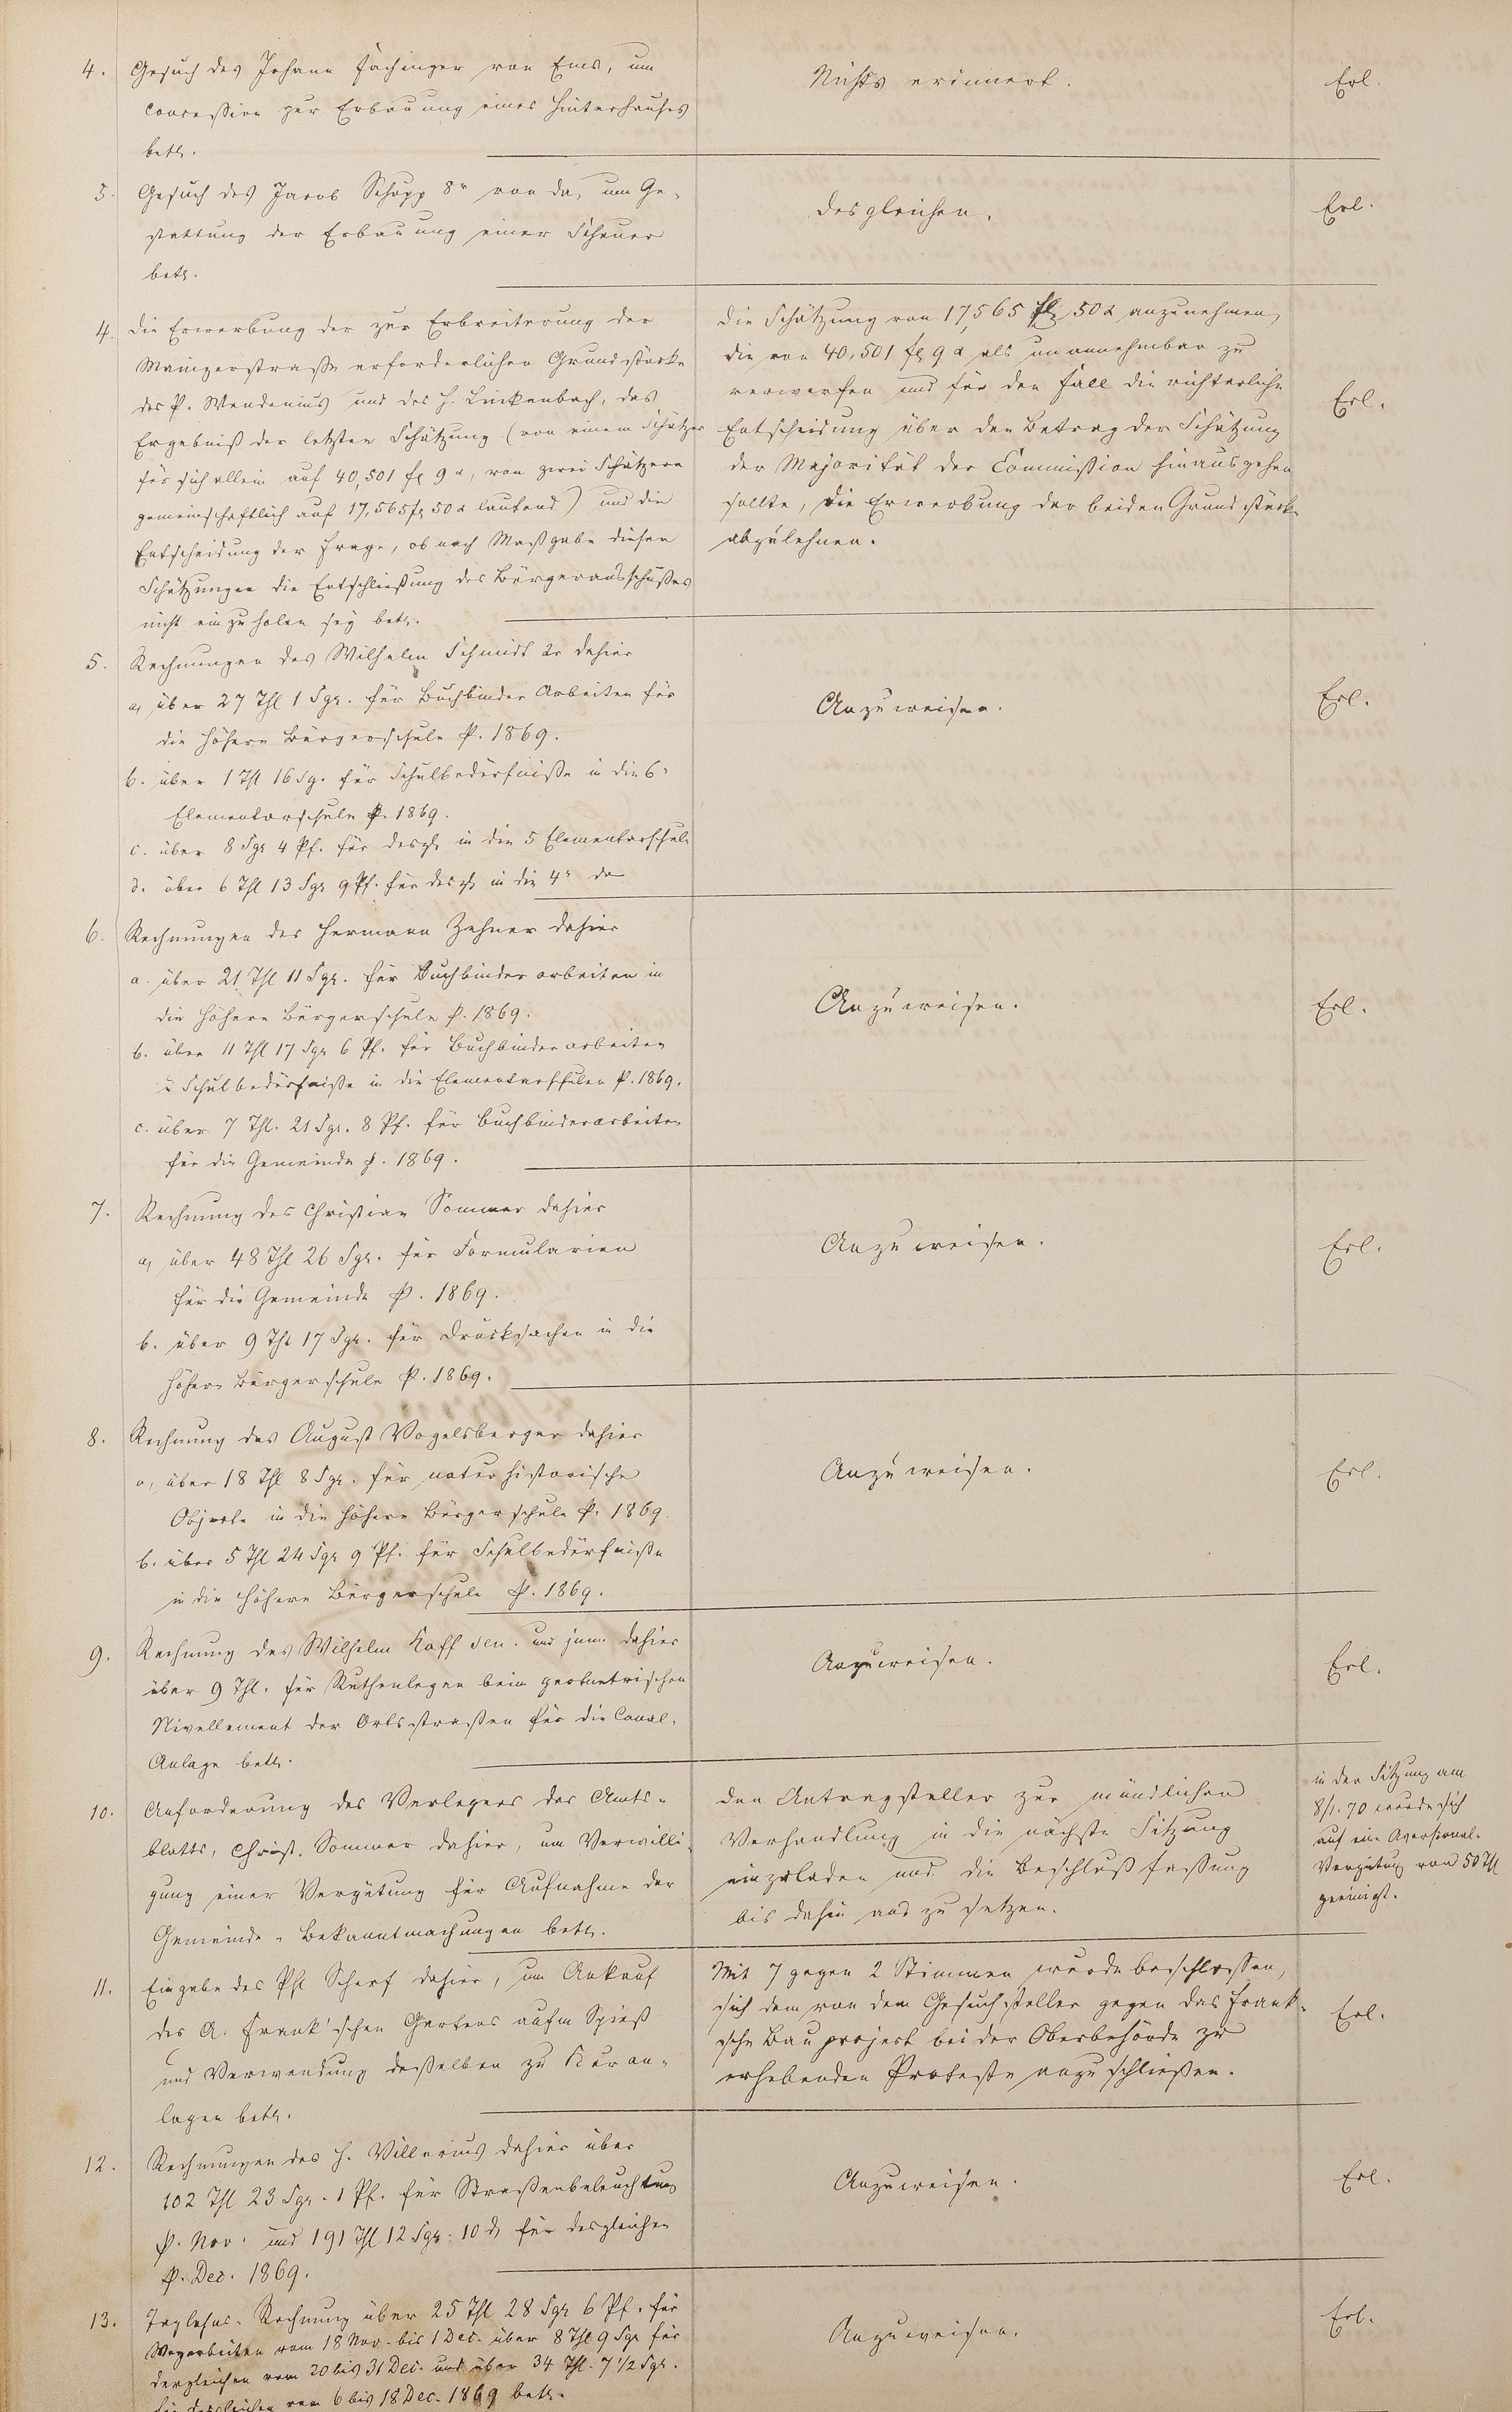 4. Gesuch des Johann Fachinger von Ems, um
Concession zur Erbauung eines Hinterhauses
betr.
Nichts erinnert.
Erl.
5. Gesuch des Jacob Schupp 8r von da, um Ge-
stattung der Erbauung einer Scheuer
betr.
desgleichen.
Erl.
4. Die Erwerbung der zur Erbreiterung der
Mainzerstraße erforderlichen Grundstücke
des P. Wendenius und des H. Linkenbach, das
Ergebniß der letzten Schätzung (von einem Schätzer
für sich allein auf 40,501 fl 9 x, von zwei Schätzern
gemeinschaftlich auf 17,565 fl 50 x lautend) und die
Entscheidung der Frage, ob nach Maßgabe dieser
Schätzungen die Entschließung des Bürgerausschußes
nicht einzuholen sey betr.
Die Schätzung von 17,565 fl 50 x anzunehmen,
die von 40,501 fl 9 x als unannehmbar zu
verwerfen und für den Fall die richterliche
Entscheidung über den Betrag der Schätzung
der Majorität der Commission hinausgehen
sollte, die Erwerbung der beiden Grundstücke
abzulehnen.
Erl.
5. Rechnungen des Wilhelm Schmidt 2r dahier
a, über 27 Thl 1 Sgr. für Buchbinder Arbeiten für
die höhere Bürgerschule p. 1869.
b. über 1 Thl 16 Sg. für Schulbedürfniße in die 6r
Elementarschule p. 1869.
c. über 8 Sgr 4 Pf. für desgl. in die 5 Elementarschule
d. über 6 Thl 13 Sgr 9 Pf. für desgl. in die 4r do
Anzuweisen.
Erl.
6. Rechnungen des Hermann Zehner dahier
a. über 21 Thl 11 Sgr. für Buchbinderarbeiten in
die höhere Bürgerschule p. 1869.
b. über 11 Thl 17 Sgr 6 Pf. für Buchbinderarbeiten
u Schulbedürfniße in die Elementarschulen p. 1869.
c. über 7 Thl. 21 Sgr. 8 Pf. für Buchbinderarbeiten
für die Gemeinde p. 1869.
Anzuweisen.
Erl.
7. Rechnung des Christian Sommer dahier
a, über 48 Thl 26 Sgr. für Formularien
für die Gemeinde p. 1869.
b. über 9 Thl 17 Sgr. für Drucksachen in die
höhere Bürgerschule p. 1869.
Anzuweisen.
Erl.
8. Rechnung des August Vogelsberger dahier
a, über 18 Thl 8 Sgr. für naturhistorische
Objecte in die höhere Bürgerschule p. 1869.
b. über 5 Thl 24 Sgr 9 Pf. für Schulbedürfniße
in die höhere Bürgerschule p. 1869.
Anzuweisen.
Erl.
9. Rechnung des Wilhelm Kaff sen. und jun. dahier
über 9 Thl. für Ruthenlegen beim geometrischen
Nivellement der Ortsstraßen für die Canal-
Anlage betr.
Anzuweisen.
Erl.
10. Anforderung des Verlegers des Amts-
blatts, Christ. Sommer dahier, um Verwilli-
gung einer Vergütung für Aufnahme der
Gemeinde-Bekanntmachungen betr.
Den Antragsteller zur mündlichen
Verhandlung in die nächste Sitzung
einzuladen und die Beschlußfaßung
bis dahin aus zu setzen.
in der Sitzung am
8/1. 70 wurde sich
auf eine Aversional-
Vergütung von 50 Thl
geeinigt.
11. Eingabe des Phl Scharf dahier, um Ankauf
des A. Frank'schen Gartens aufm Spieß
und Verwendung deßelben zu Kuran-
lagen betr.
Mit 7 gegen 2 Stimmen wurde beschlossen,
sich dem von dem Gesuchsteller gegen das Frank-
sche Bauproject bei der Oberbehörde zu
erhebenden Proteste anzuschließen.
Erl.
12. Rechnungen des H. Villerius dahier über
102 Thl 23 Sgr. 1 Pf. für Straßenbeleuchtung
p. Nov. und 191 Thl 12 Sgr. 10 d für desgleichen
p. Dec. 1869.
Anzuweisen.
Erl.
13. Taglohns-Rechnung über 25 Thl 28 Sgr 6 Pf. für
Wegarbeiten vom 18 Nov. bis 1 Dec. über 8 Thl 9 Sgr für
dergleichen vom 20 bis 31 Dec. und über 34 Thl. 7 1/2 Sgr.
für desgleichen vom 6 bis 18 Dec. 1869 betr.
Anzuweisen.
Erl.